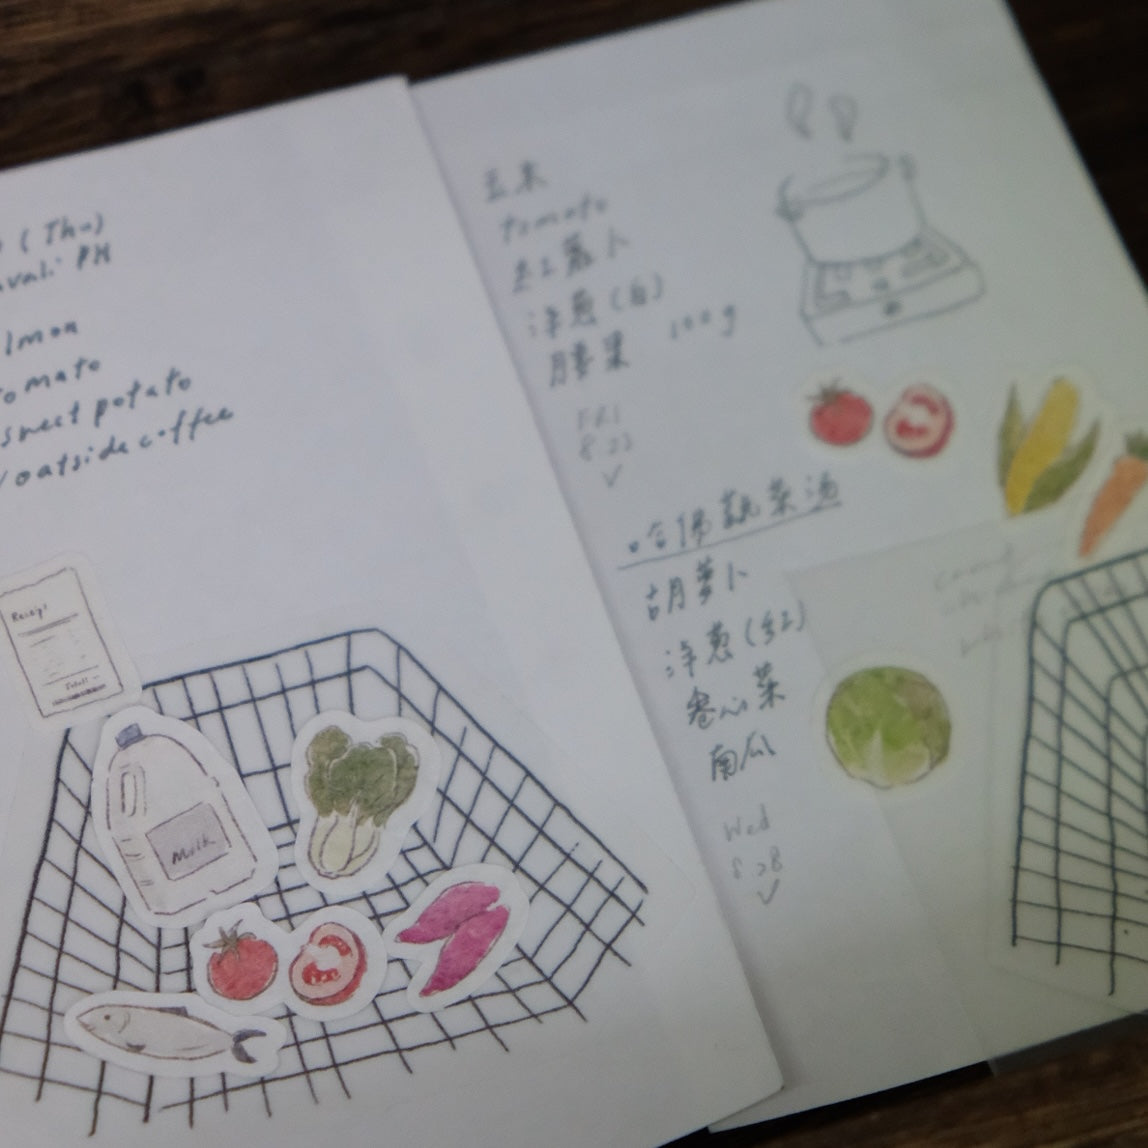 (Thu)
PH
lmon
tomato
sweet potato
/ oatside coffee
Receipt
Total
Milk
玉米
tomato
红萝卜
洋葱 (白)
腰果 100g
FRI
8.23
哈佛蔬菜汤
胡萝卜
洋葱 (红)
卷心菜
南瓜
Wed
8.28